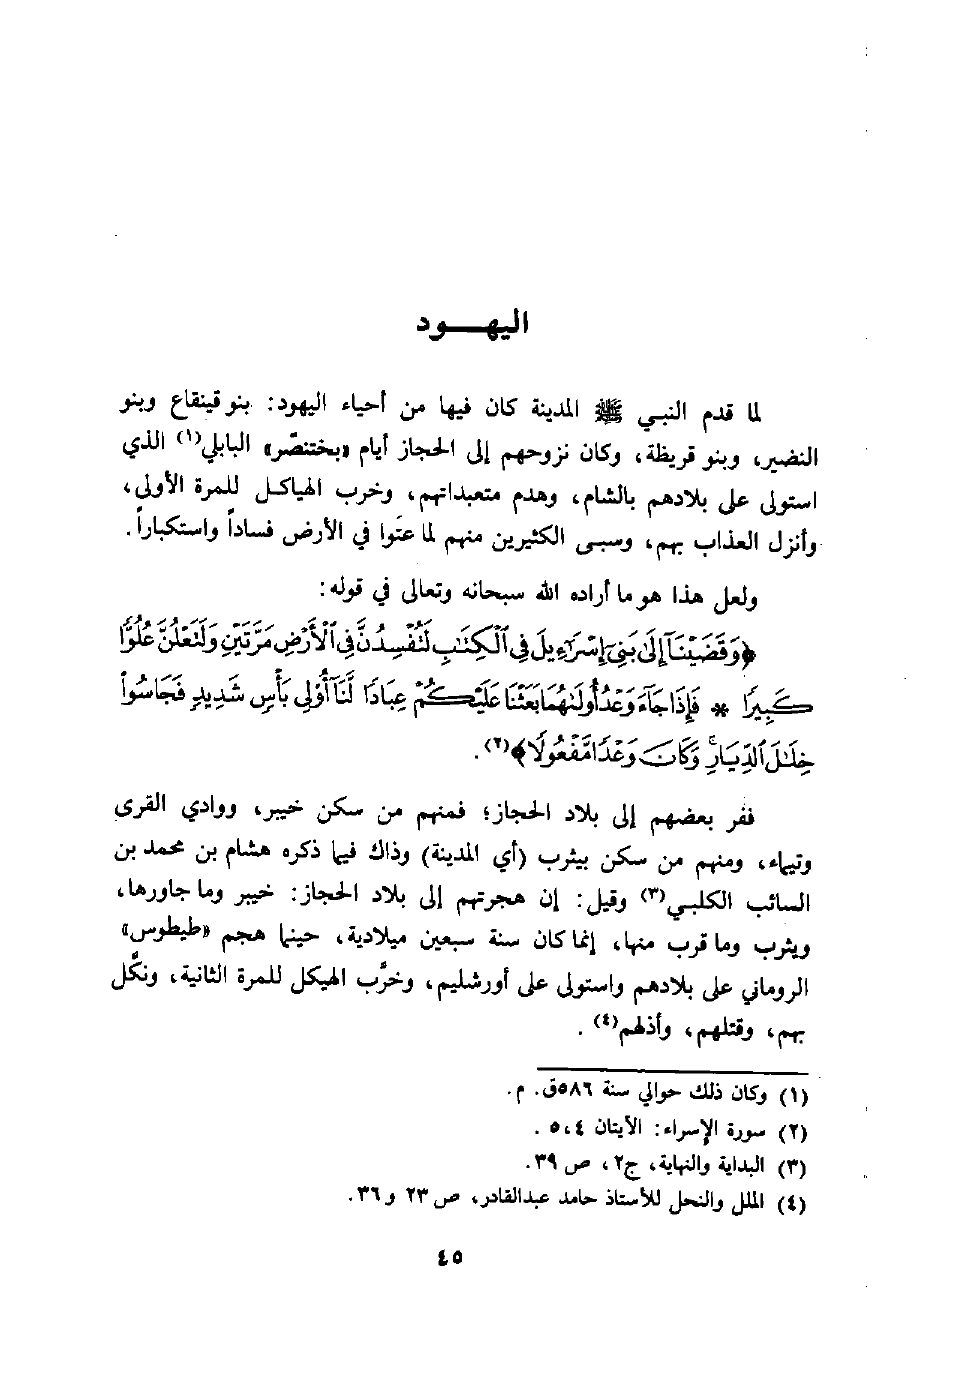 اليهـــود
لما قدم النبي ﷺ المدينة كان فيها من أحياء اليهود: بنو قينقاع وبنو
النضير، وبنو قريظة، وكان نزوحهم إلى الحجاز أيام «بختنصّر» البابلي(١) الذي
استولى على بلادهم بالشام، وهدم متعبداتهم، وخرب الهياكل للمرة الأولى،
وأنزل العذاب بهم، وسبى الكثيرين منهم لما عتَوا في الأرض فساداً واستكباراً.
ولعل هذا هو ما أراده الله سبحانه وتعالى في قوله:
﴿وَقَضَيْنَآ إِلَىٰ بَنِىٓ إِسْرَٰٓءِيلَ فِى ٱلْكِتَٰبِ لَتُفْسِدُنَّ فِى ٱلْأَرْضِ مَرَّتَيْنِ وَلَتَعْلُنَّ عُلُوًّا
كَبِيرًا * فَإِذَا جَآءَ وَعْدُ أُولَىٰهُمَا بَعَثْنَا عَلَيْكُمْ عِبَادًا لَّنَآ أُوْلِى بَأْسٍ شَدِيدٍ فَجَاسُوا۟
خِلَٰلَ ٱلدِّيَارِ ۚ وَكَانَ وَعْدًا مَّفْعُولًا﴾(٢).
ففر بعضهم إلى بلاد الحجاز؛ فمنهم من سكن خيبر، ووادي القرى
وتيماء، ومنهم من سكن بيثرب (أي المدينة) وذاك فيما ذكره هشام بن محمد بن
السائب الكلبي(٣) وقيل: إن هجرتهم إلى بلاد الحجاز: خيبر وما جاورها،
ويثرب وما قرب منها، إنما كان سنة سبعين ميلادية، حينما هجم «طيطوس»
الروماني على بلادهم واستولى على أورشليم، وخرَّب الهيكل للمرة الثانية، ونكَّل
بهم، وقتلهم، وأذلهم(٤).
(١) وكان ذلك حوالي سنة ٥٨٦ق. م.
(٢) سورة الإسراء: الآيتان ٤، ٥.
(٣) البداية والنهاية، ج٢، ص ٣٩.
(٤) الملل والنحل للأستاذ حامد عبدالقادر، ص ٢٣ و ٣٦.
٤٥